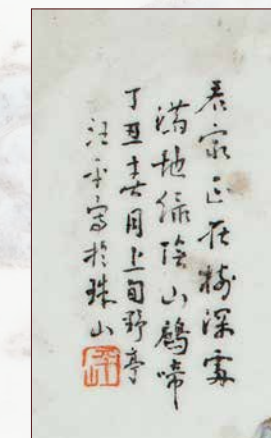 君家正在樹深處
滿地綠陰山鷓啼
丁丑年六月上旬野亭
汪平寫於珠山